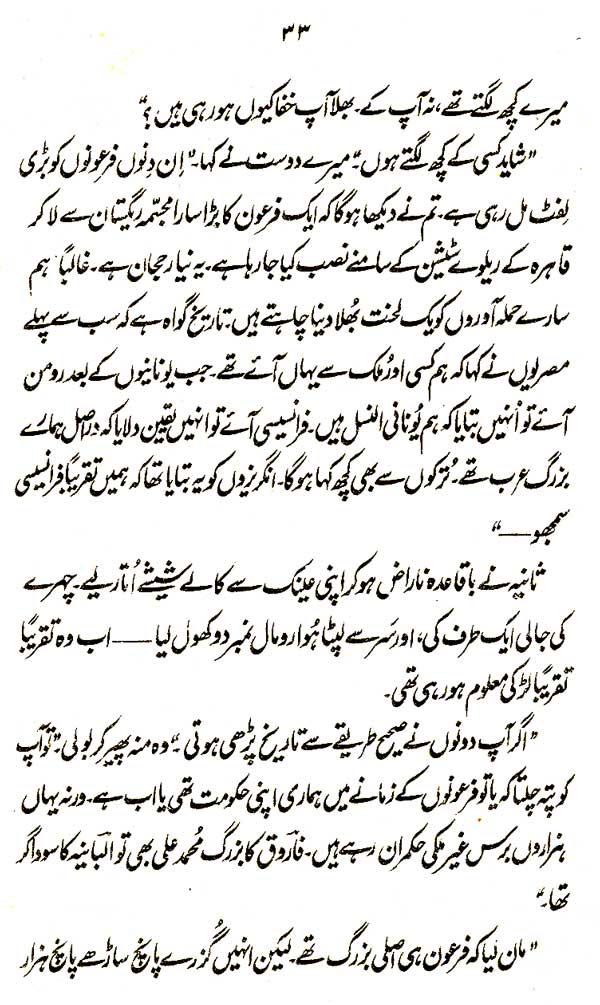 ۳۳
میرے کچھ لگتے تھے، نہ آپ کے۔ بھلا آپ خفا کیوں ہو رہی ہیں؟“
”شاید کسی کے کچھ لگتے ہوں۔“ میرے دوست نے کہا۔ ”اِن دِنوں فرعونوں کو بڑی
لِفٹ مل رہی ہے۔ تم نے دیکھا ہوگا کہ ایک فرعون کا بڑا سارا مجسّمہ ریگستان سے لا کر
قاہرہ کے ریلوے سٹیشن کے سامنے نصب کیا جا رہا ہے۔ یہ نیا رحجان ہے۔ غالباً ہم
سارے حملہ آوروں کو یک لخت بُھلا دینا چاہتے ہیں۔ تاریخ گواہ ہے کہ سب سے پہلے
مصریوں نے کہا کہ ہم کسی اور مُلک سے یہاں آئے تھے۔ جب یونانیوں کے بعد رومن
آئے تو اُنہیں بتایا کہ ہم یُونانی النسل ہیں۔ فرانسیسی آئے تو انہیں یقین دلایا کہ دراصل ہمارے
بزرگ عرب تھے۔ تُرکوں سے بھی کچھ کہا ہوگا۔ انگریزوں کو یہ بتایا تھا کہ ہمیں تقریباً فرانسیسی
سمجھو——“
ثانیہ نے باقاعدہ ناراض ہو کر اپنی عینک سے کالے شیشے اُتار لیے۔ چہرے
کی جالی ایک طرف کی، اور سَر سے لپٹا ہُوا رومال نمبر دو کھول لیا —— اب وہ تقریبًا
تقریبًا لڑکی معلوم ہو رہی تھی۔
”اگر آپ دونوں نے صحیح طریقے سے تاریخ پڑھی ہوتی۔“ وہ منہ پھیر کر بولی۔ ”تو آپ
کو پتہ چلتا کہ یا تو فرعونوں کے زمانے میں ہماری اپنی حکومت تھی یا اب ہے۔ ورنہ یہاں
ہزاروں برس غیر ملکی حکمران رہے ہیں۔ فاروق کا بزرگ مُحمد علی بھی تو البانیہ کا سوداگر
تھا۔“
”مان لیا کہ فرعون ہی اصلی بزرگ تھے۔ لیکن انہیں گُزرے پانچ ساڑھے پانچ ہزار